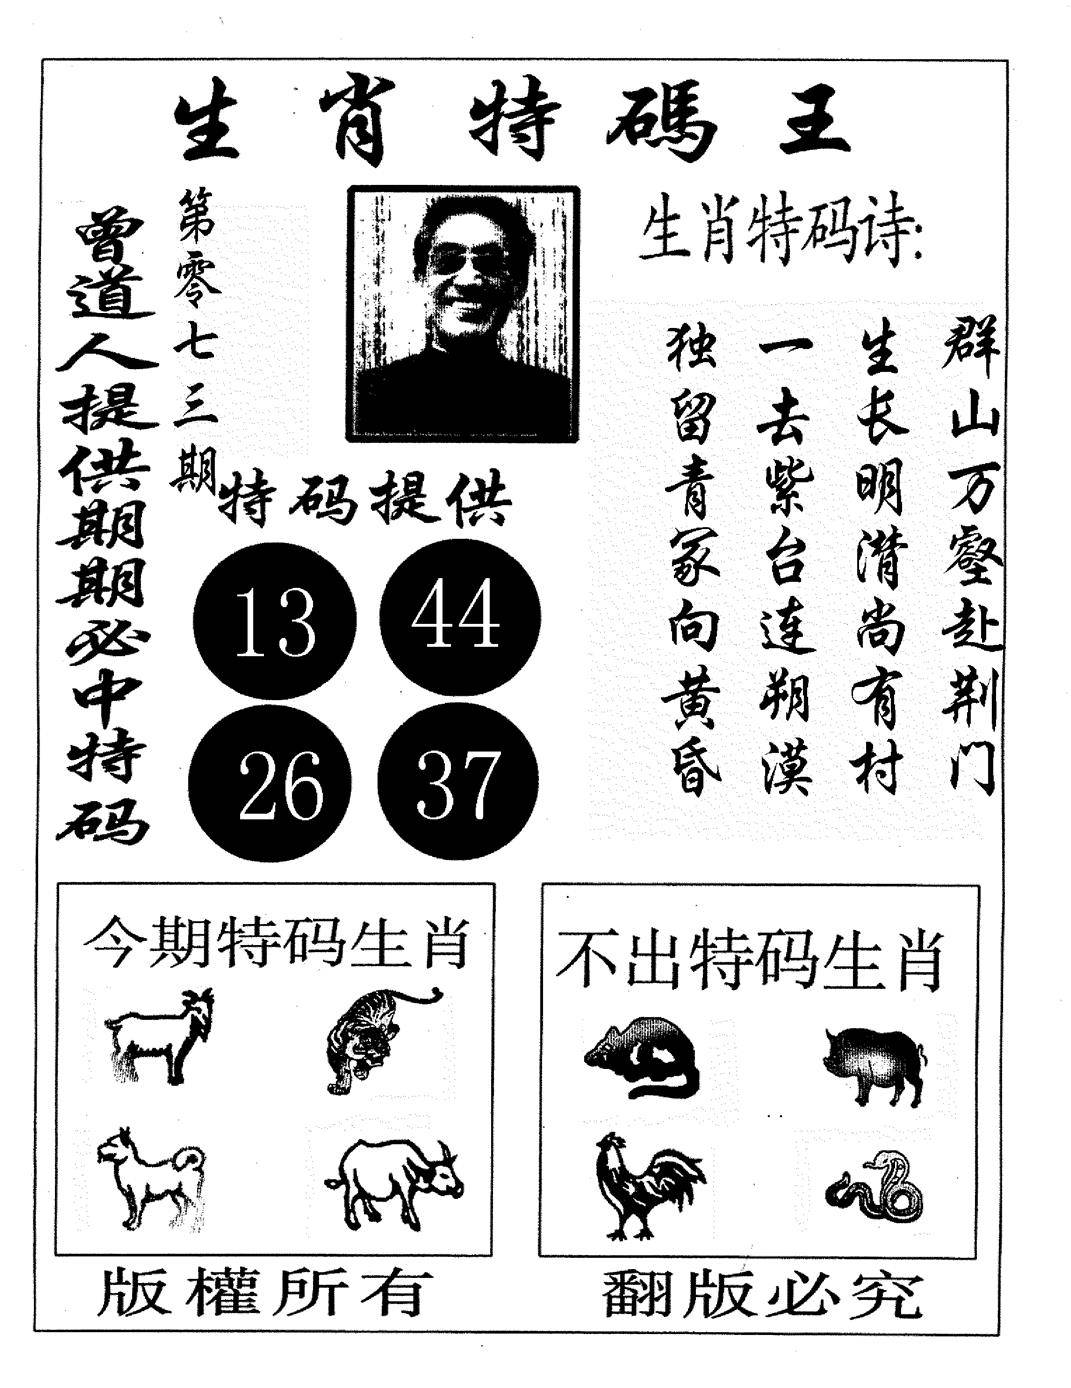 生肖特碼王
曾道人提供期期必中特码
第零七三期
生肖特码诗:
群山万壑赴荆门
生长明潜尚有村
一去紫台连朔漠
独留青冢向黄昏
特码提供
13 44
26 37
今期特码生肖
不出特码生肖
版權所有
翻版必究